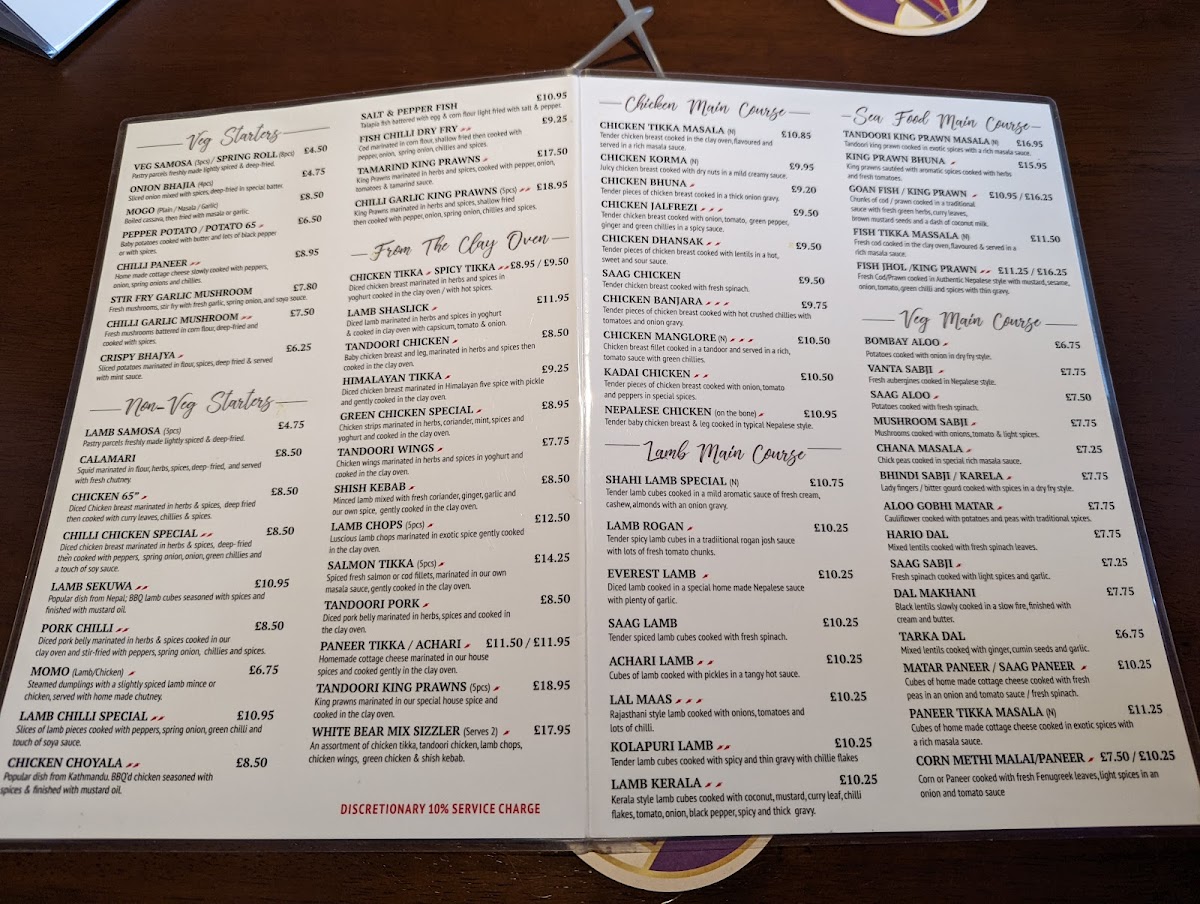 Veg Starters
VEG SAMOSA (5pcs) / SPRING ROLL (8pcs) £4.50
Pastry parcels freshly made lightly spiced & deep-fried.
ONION BHAJIA (4pcs) £4.75
Sliced onion mixed with spices, deep-fried in special batter.
MOGO (Plain / Masala / Garlic) £8.50
Boiled cassava, then fried with masala or garlic.
PEPPER POTATO / POTATO 65 £6.50
Baby potatoes cooked with butter and lots of black pepper
or with spices.
CHILLI PANEER £8.95
Home made cottage cheese slowly cooked with peppers,
onion, spring onions and chillies.
STIR FRY GARLIC MUSHROOM £7.80
Fresh mushrooms, stir fry with fresh garlic, spring onion, and soya sauce.
CHILLI GARLIC MUSHROOM £7.50
Fresh mushrooms battered in corn flour, deep-fried and
cooked with spices.
CRISPY BHAJYA £6.25
Sliced potatoes marinated in flour, spices, deep fried & served
with mint sauce.
Non-Veg Starters
LAMB SAMOSA (5pcs) £4.75
Pastry parcels freshly made lightly spiced & deep-fried.
CALAMARI £8.50
Squid marinated in flour, herbs, spices, deep-fried, and served
with fresh chutney.
CHICKEN 65" £8.50
Diced Chicken breast marinated in herbs & spices, deep fried
then cooked with curry leaves, chillies & spices.
CHILLI CHICKEN SPECIAL £8.50
Diced chicken breast marinated in herbs & spices, deep-fried
then cooked with peppers, spring onion, onion, green chillies and
a touch of soy sauce.
LAMB SEKUWA £10.95
Popular dish from Nepal; BBQ lamb cubes seasoned with spices and
finished with mustard oil.
PORK CHILLI £8.50
Diced pork belly marinated in herbs & spices cooked in our
clay oven and stir-fried with peppers, spring onion, chillies and spices.
MOMO (Lamb/Chicken) £6.75
Steamed dumplings with a slightly spiced lamb mince or
chicken, served with home made chutney.
LAMB CHILLI SPECIAL £10.95
Slices of lamb pieces cooked with peppers, spring onion, green chilli and
touch of soya sauce.
CHICKEN CHOYALA £8.50
Popular dish from Kathmandu. BBQ'd chicken seasoned with
spices & finished with mustard oil.
SALT & PEPPER FISH £10.95
Talapia fish battered with egg & corn flour light fried with salt & pepper.
FISH CHILLI DRY FRY £9.25
Cod marinated in corn flour, shallow fried then cooked with
pepper, onion, spring onion, chillies and spices.
TAMARIND KING PRAWNS £17.50
King Prawns marinated in herbs and spices, cooked with pepper, onion,
tomatoes & tamarind sauce.
CHILLI GARLIC KING PRAWNS (5pcs) £18.95
King Prawns marinated in herbs and spices, shallow fried
then cooked with pepper, onion, spring onion, chillies and spices.
From The Clay Oven
CHICKEN TIKKA / SPICY TIKKA £8.95 / £9.50
Diced chicken breast marinated in herbs and spices in
yoghurt cooked in the clay oven / with hot spices.
LAMB SHASLICK £11.95
Diced lamb marinated in herbs and spices in yoghurt
& cooked in clay oven with capsicum, tomato & onion.
TANDOORI CHICKEN £8.50
Baby chicken breast and leg, marinated in herbs and spices then
cooked in the clay oven.
HIMALAYAN TIKKA £9.25
Diced chicken breast marinated in Himalayan five spice with pickle
and gently cooked in the clay oven.
GREEN CHICKEN SPECIAL £8.95
Chicken strips marinated in herbs, coriander, mint, spices and
yoghurt and cooked in the clay oven.
TANDOORI WINGS £7.75
Chicken wings marinated in herbs and spices in yoghurt and
cooked in the clay oven.
SHISH KEBAB £8.50
Minced lamb mixed with fresh coriander, ginger, garlic and
our own spice, gently cooked in the clay oven.
LAMB CHOPS (5pcs) £12.50
Luscious lamb chops marinated in exotic spice gently cooked
in the clay oven.
SALMON TIKKA (5pcs) £14.25
Spiced fresh salmon or cod fillets, marinated in our own
masala sauce, gently cooked in the clay oven.
TANDOORI PORK £8.50
Diced pork belly marinated in herbs, spices and cooked in
the clay oven.
PANEER TIKKA / ACHARI £11.50 / £11.95
Homemade cottage cheese marinated in our house
spices and cooked gently in the clay oven.
TANDOORI KING PRAWNS (5pcs) £18.95
King prawns marinated in our special house spice and
cooked in the clay oven.
WHITE BEAR MIX SIZZLER (Serves 2) £17.95
An assortment of chicken tikka, tandoori chicken, lamb chops,
chicken wings, green chicken & shish kebab.
DISCRETIONARY 10% SERVICE CHARGE
Chicken Main Course
CHICKEN TIKKA MASALA (N) £10.85
Tender chicken breast cooked in the clay oven, flavoured and
served in a rich masala sauce.
CHICKEN KORMA (N) £9.95
Juicy chicken breast cooked with dry nuts in a mild creamy sauce.
CHICKEN BHUNA £9.20
Tender pieces of chicken breast cooked in a thick onion gravy.
CHICKEN JALFREZI £9.50
Tender chicken breast cooked with onion, tomato, green pepper,
ginger and green chillies in a spicy sauce.
CHICKEN DHANSAK £9.50
Tender pieces of chicken breast cooked with lentils in a hot,
sweet and sour sauce.
SAAG CHICKEN £9.50
Tender chicken breast cooked with fresh spinach.
CHICKEN BANJARA £9.75
Tender pieces of chicken breast cooked with hot crushed chillies with
tomatoes and onion gravy.
CHICKEN MANGLORE (N) £10.50
Chicken breast fillet cooked in a tandoor and served in a rich,
tomato sauce with green chillies.
KADAI CHICKEN £10.50
Tender pieces of chicken breast cooked with onion, tomato
and peppers in special spices.
NEPALESE CHICKEN (on the bone) £10.95
Tender baby chicken breast & leg cooked in typical Nepalese style.
Lamb Main Course
SHAHI LAMB SPECIAL (N) £10.75
Tender lamb cubes cooked in a mild aromatic sauce of fresh cream,
cashew, almonds with an onion gravy.
LAMB ROGAN £10.25
Tender spicy lamb cubes cooked in a traditiional rogan josh sauce
with lots of fresh tomato chunks.
EVEREST LAMB £10.25
Diced lamb cooked in a special home made Nepalese sauce
with plenty of garlic.
SAAG LAMB £10.25
Tender spiced lamb cubes cooked with fresh spinach.
ACHARI LAMB £10.25
Cubes of lamb cooked with pickles in a tangy hot sauce.
LAL MAAS £10.25
Rajasthani style lamb cooked with onions, tomatoes and
lots of chilli.
KOLAPURI LAMB £10.25
Tender lamb cubes cooked with spicy and thin gravy with chillie flakes
LAMB KERALA £10.25
Kerala style lamb cubes cooked with coconut, mustard, curry leaf, chilli
flakes, tomato, onion, black pepper, spicy and thick gravy.
Sea Food Main Course
TANDOORI KING PRAWN MASALA (N) £16.95
Tandoori king prawn cooked in exotic spices with a rich masala sauce.
KING PRAWN BHUNA £15.95
King prawns sautéed with aromatic spices cooked with herbs
and fresh tomatoes.
GOAN FISH / KING PRAWN £10.95 / £16.25
Chunks of cod / prawn cooked in a traditional
sauce with fresh green herbs, curry leaves,
brown mustard seeds and a dash of coconut milk.
FISH TIKKA MASSALA (N) £11.50
Fresh cod cooked in the clay oven, flavoured & served in a
rich masala sauce.
FISH JHOL /KING PRAWN £11.25 / £16.25
Fresh Cod/Prawn cooked in Authentic Nepalese style with mustard, sesame,
onion, tomato, green chilli and spices with thin gravy.
Veg Main Course
BOMBAY ALOO £6.75
Potatoes cooked with onion in dry fry style.
VANTA SABJI £7.75
Fresh aubergines cooked in Nepalese style.
SAAG ALOO £7.50
Potatoes cooked with fresh spinach.
MUSHROOM SABJI £7.75
Mushrooms cooked with onions, tomato & light spices.
CHANA MASALA £7.25
Chick peas cooked in special rich masala sauce.
BHINDI SABJI / KARELA £7.75
Lady fingers / bitter gourd cooked with spices in a dry fry style.
ALOO GOBHI MATAR £7.75
Cauliflower cooked with potatoes and peas with traditional spices.
HARIO DAL £7.75
Mixed lentils cooked with fresh spinach leaves.
SAAG SABJI £7.25
Fresh spinach cooked with light spices and garlic.
DAL MAKHANI £7.75
Black lentils slowly cooked in a slow fire, finished with
cream and butter.
TARKA DAL £6.75
Mixed lentils cooked with ginger, cumin seeds and garlic.
MATAR PANEER / SAAG PANEER £10.25
Cubes of home made cottage cheese cooked with fresh
peas in an onion and tomato sauce / fresh spinach.
PANEER TIKKA MASALA (N) £11.25
Cubes of home made cottage cheese cooked in exotic spices with
a rich masala sauce.
CORN METHI MALAI/PANEER £7.50 / £10.25
Corn or Paneer cooked with fresh Fenugreek leaves, light spices in an
onion and tomato sauce